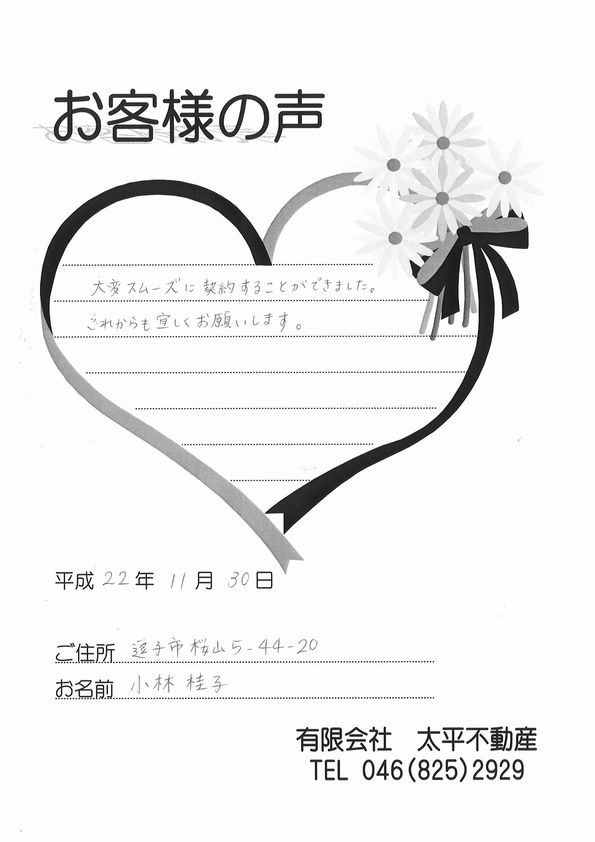 お客様の声
大変スムーズに契約することができました。
これからも宜しくお願いします。
平成 22 年 11 月 30 日
ご住所 逗子市桜山5-44-20
お名前 小林 桂子
有限会社 太平不動産
TEL 046(825)2929